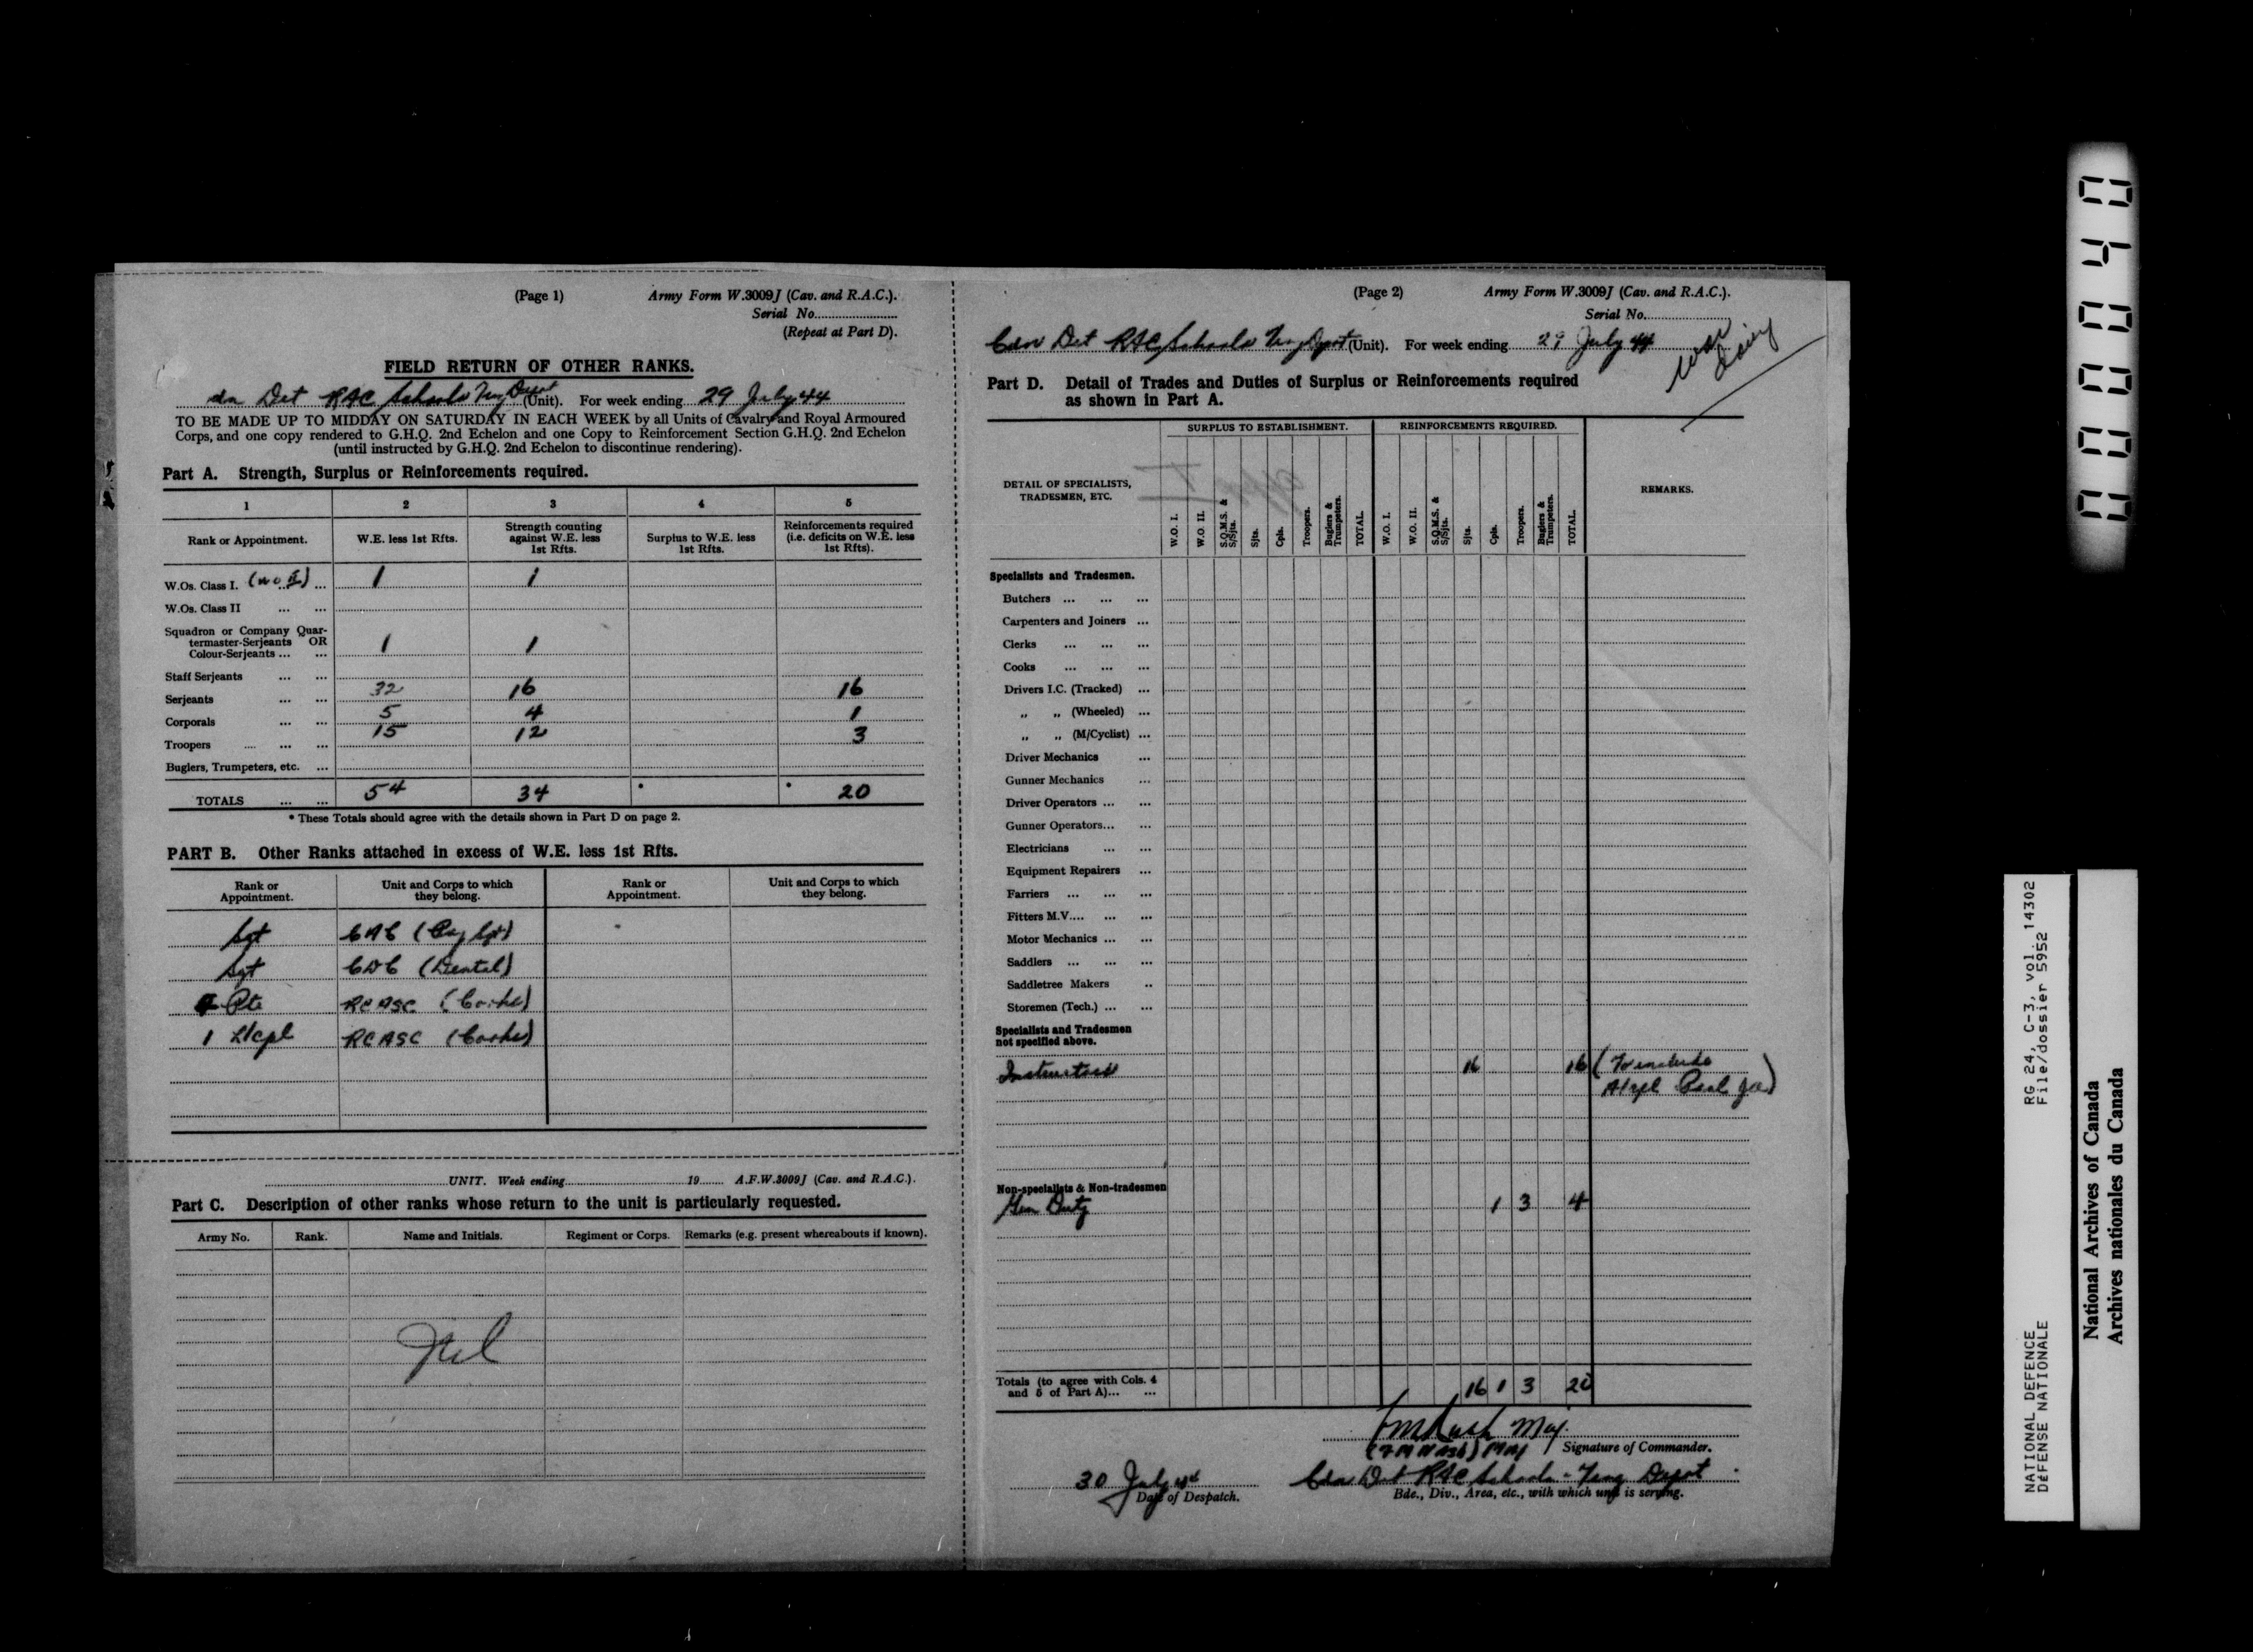 (Page 1) Army Form W.3009J (Cav. and R.A.C.).
Serial No.
(Repeat at Part D).
FIELD RETURN OF OTHER RANKS.
dn Det RAC Schools Trg Depot (Unit). For week ending 29 July 44
TO BE MADE UP TO MIDDAY ON SATURDAY IN EACH WEEK by all Units of Cavalry and Royal Armoured
Corps, and one copy rendered to G.H.Q. 2nd Echelon and one Copy to Reinforcement Section G.H.Q. 2nd Echelon
(until instructed by G.H.Q. 2nd Echelon to discontinue rendering).
Part A. Strength, Surplus or Reinforcements required.
1 2 3 4 5
Rank or Appointment. W.E. less 1st Rfts. Strength counting against W.E. less 1st Rfts. Surplus to W.E. less 1st Rfts. Reinforcements required (i.e. deficits on W.E. less 1st Rfts).
W.Os. Class I. (WO II) ... 1 1
W.Os. Class II ... ...
Squadron or Company Quar-
termaster-Serjeants OR
Colour-Serjeants ... ... 1 1
Staff Serjeants ... ...
Serjeants ... ... 32 16 16
Corporals ... ... 5 4 1
Troopers ... ... ... 15 12 3
Buglers, Trumpeters, etc. ...
TOTALS ... ... 54 34 * * 20
* These Totals should agree with the details shown in Part D on page 2.
PART B. Other Ranks attached in excess of W.E. less 1st Rfts.
Rank or Appointment. Unit and Corps to which they belong. Rank or Appointment. Unit and Corps to which they belong.
Sgt
Sgt CDC (Dental)
Pte RCASC (Cooks)
1 L/Cpl RCASC (Cooks)
UNIT. Week ending 19 A.F.W.3009J (Cav. and R.A.C.).
Part C. Description of other ranks whose return to the unit is particularly requested.
Army No. Rank. Name and Initials. Regiment or Corps. Remarks (e.g. present whereabouts if known).
Nil
(Page 2) Army Form W.3009J (Cav. and R.A.C.).
Serial No.
Cdn Det RAC Schools Trg Depot (Unit). For week ending 29 July 44
Part D. Detail of Trades and Duties of Surplus or Reinforcements required
as shown in Part A.
SURPLUS TO ESTABLISHMENT. REINFORCEMENTS REQUIRED.
DETAIL OF SPECIALISTS, TRADESMEN, ETC.
W.O. I. W.O. II. S.Q.M.S. & S/Sjts. Sjts. Cpls. Troopers. Buglers & Trumpeters. TOTAL. W.O. I. W.O. II. S.Q.M.S. & S/Sjts. Sjts. Cpls. Troopers. Buglers & Trumpeters. TOTAL. REMARKS.
Specialists and Tradesmen.
Butchers ... ... ...
Carpenters and Joiners ...
Clerks ... ... ...
Cooks ... ... ...
Drivers I.C. (Tracked) ...
,, ,, (Wheeled) ...
,, ,, (M/Cyclist) ...
Driver Mechanics ...
Gunner Mechanics ...
Driver Operators ... ...
Gunner Operators... ...
Electricians ... ...
Equipment Repairers ...
Farriers ... ... ...
Fitters M.V.... ... ...
Motor Mechanics ... ...
Saddlers ... ... ...
Saddletree Makers ..
Storemen (Tech.) ... ...
Specialists and Tradesmen
not specified above.
Instructors 16 16 (To include
A/Cpl
Non-specialists & Non-tradesmen
Gen Duty 1 3 4
Totals (to agree with Cols. 4
and 5 of Part A)... ... 16 1 3 20
Maj.
(F M Nash) Maj Signature of Commander.
30 July 44 Cdn Det RAC Schools - Trng Depot
Date of Despatch. Bde., Div., Area, etc., with which unit is serving.
000040
RG 24, C-3, vol. 14302
File/dossier 5952
NATIONAL DEFENCE
DÉFENSE NATIONALE
National Archives of Canada
Archives nationales du Canada